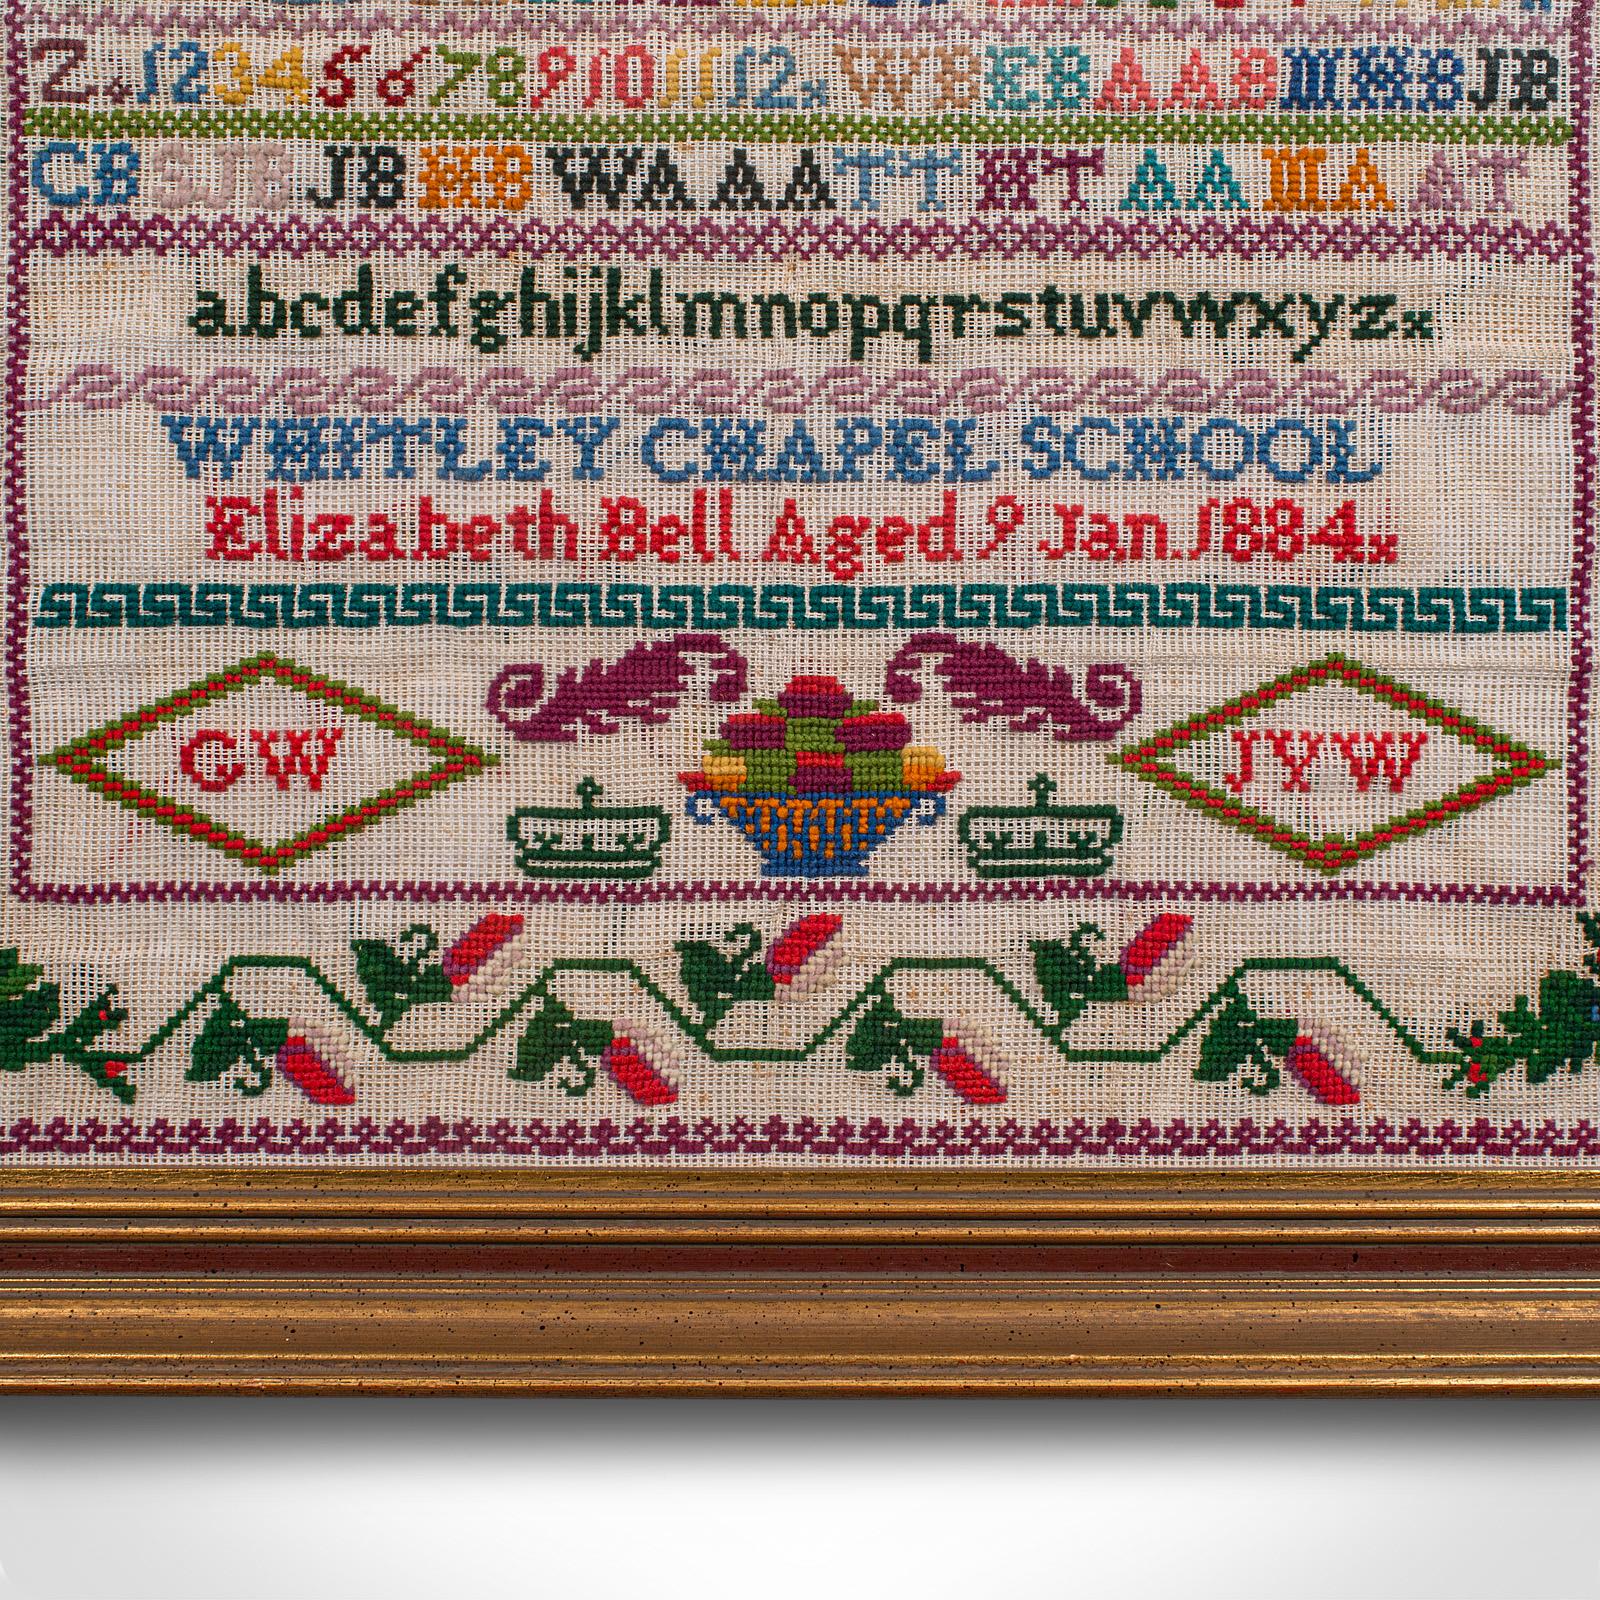 Z. 1 2 3 4 5 6 7 8 9 10 11 12. WB EB AAB MWB JB
CB SJB JB MB WA AA TT MT AA MA AT
abcdefghijklmnopqrstuvwxyz.
WHITLEY CHAPEL SCHOOL
Elizabeth Bell Aged 9 Jan. 1884.
GW JYW